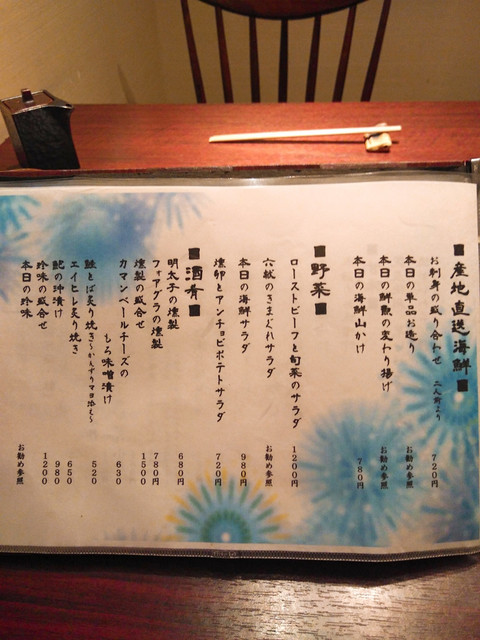 ■産地直送海鮮■
お刺身の盛り合わせ 二人前より 720円
本日の単品お造り お勧め参照
本日の鮮魚の変わり揚げ お勧め参照
本日の海鮮山かけ 780円
■野菜■
ローストビーフと旬菜のサラダ 1200円
六献のきまぐれサラダ お勧め参照
本日の海鮮サラダ 980円
燻卵とアンチョビポテトサラダ 720円
■酒肴■
明太子の燻製 680円
フォアグラの燻製 780円
燻製の盛合せ 1500
カマンベールチーズの
もろ味噌漬け 630
鮭とば炙り焼き~かんずりマヨ添え~ 520
エイヒレ炙り焼き 650
鮑の沖漬け 980
珍味の盛合せ 1200
本日の珍味 お勧め参照